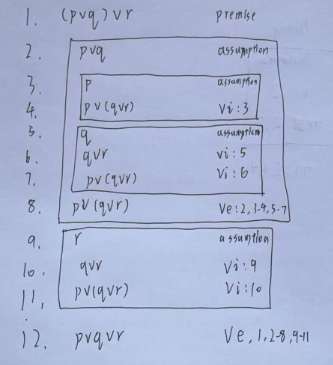 1. (pvq)vr premise
2. pvq assumption
3. p assumption
4. pv(qvr) vi:3
5. q assumption
6. qvr vi:5
7. pv(qvr) vi:6
8. pv(qvr) ve:2,3-4,5-7
9. r assumption
10. qvr vi:9
11. pv(qvr) vi:10
12. pvqvr ve,1,2-8,9-11